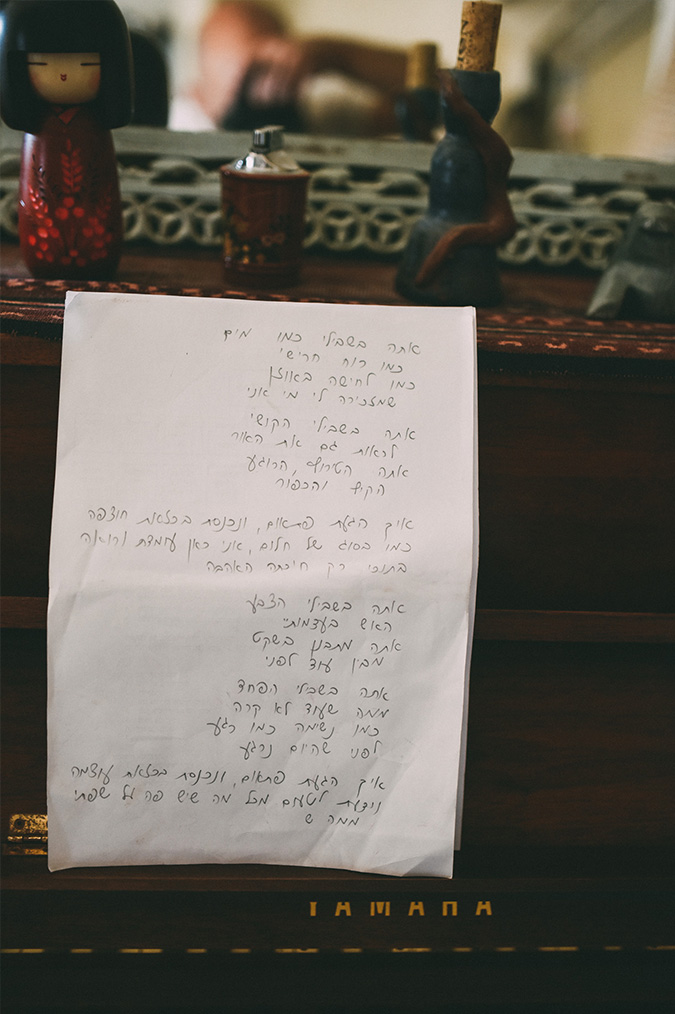 אתה בשבילי כמו מים
כמו רוח חרישי
כמו לחישה באוזן
שמזכירה לי מי אני
אתה בשבילי הקושי
לראות גם את האור
אתה הטירוף, הרוגע
הקיץ והכפור
איך הגעת פתאום, ונכנסת בכזאת חוצפה
כמו בסוג של חלום, אני כאן עומדת ורואה
בתוכי רק חיכתה האהבה
אתה בשבילי הצבע
האש בעצמותיי
אתה מתבונן בשקט
מבין עוד לפני
אתה בשבילי הפחד
ממה שעוד לא קרה
כמו נשימה כמו רגע
לפני שהיום נרגע
איך הגעת פתאום, ונכנסת בכזאת עוצמה
וידעת לטעום מכל מה שיש פה על שפתי
ממה ש
YAMAHA